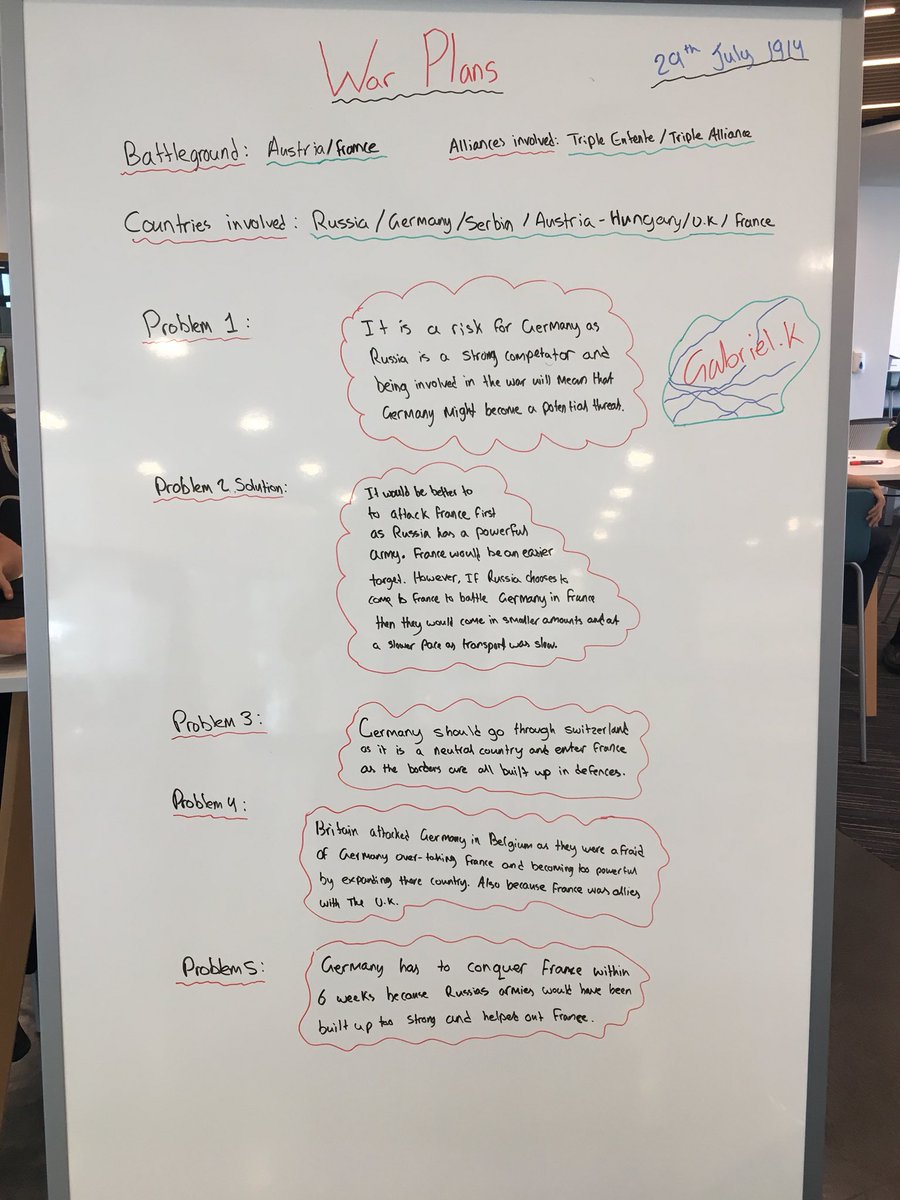 War Plans
29th July 1914
Battleground: Austria/France
Alliances involved: Triple Entente / Triple Alliance
Countries involved: Russia / Germany / Serbin / Austria-Hungary / U.K / France
Problem 1:
It is a risk for Germany as
Russia is a strong competator and
being involved in the war will mean that
Germany might become a potential threat.
Gabriel.K
Problem 2 Solution:
It would be better to
to attack France first
as Russia has a powerful
army. France would be an easier
target. However, If Russia chooses to
come to France to battle Germany in France
then they would come in smaller amounts and at
a slower pace as transport was slow.
Problem 3:
Germany should go through switzerland
as it is a neutral country and enter France
as the borders are all built up in defences.
Problem 4:
Britain attacked Germany in Belgium as they were afraid
of Germany over-taking France and becoming too powerful
by expanding there country. Also because France was allies
with The U.K.
Problem 5:
Germany has to conquer France within
6 weeks because Russias armies would have been
built up too strong and helped out France.